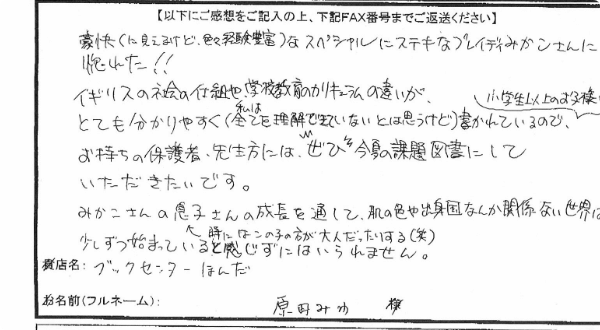 【以下にご感想をご記入の上、下記FAX番号までご返送ください】
豪快(に見えるけど、色々経験豊富)なスペシャルにステキなブレイディみかこさんに
惚れた!!
イギリスの社会の仕組や学校教育のカリキュラムの違いが、
とても分かりやすく(私は全てを理解できていないとは思うけど)書かれているので、小学生以上のお子様
お持ちの保護者、先生方には、ぜひ今夏の課題図書にして
いただきたいです。
みかこさんの息子さんの成長を通して、肌の色や出身国なんか関係ない世界は
少しずつ始まっていると感じずにはいられません。
時にはこの子の方が大人だったりする(笑)
貴店名: ブックセンターほんだ
お名前(フルネーム): 原田みゆ 様